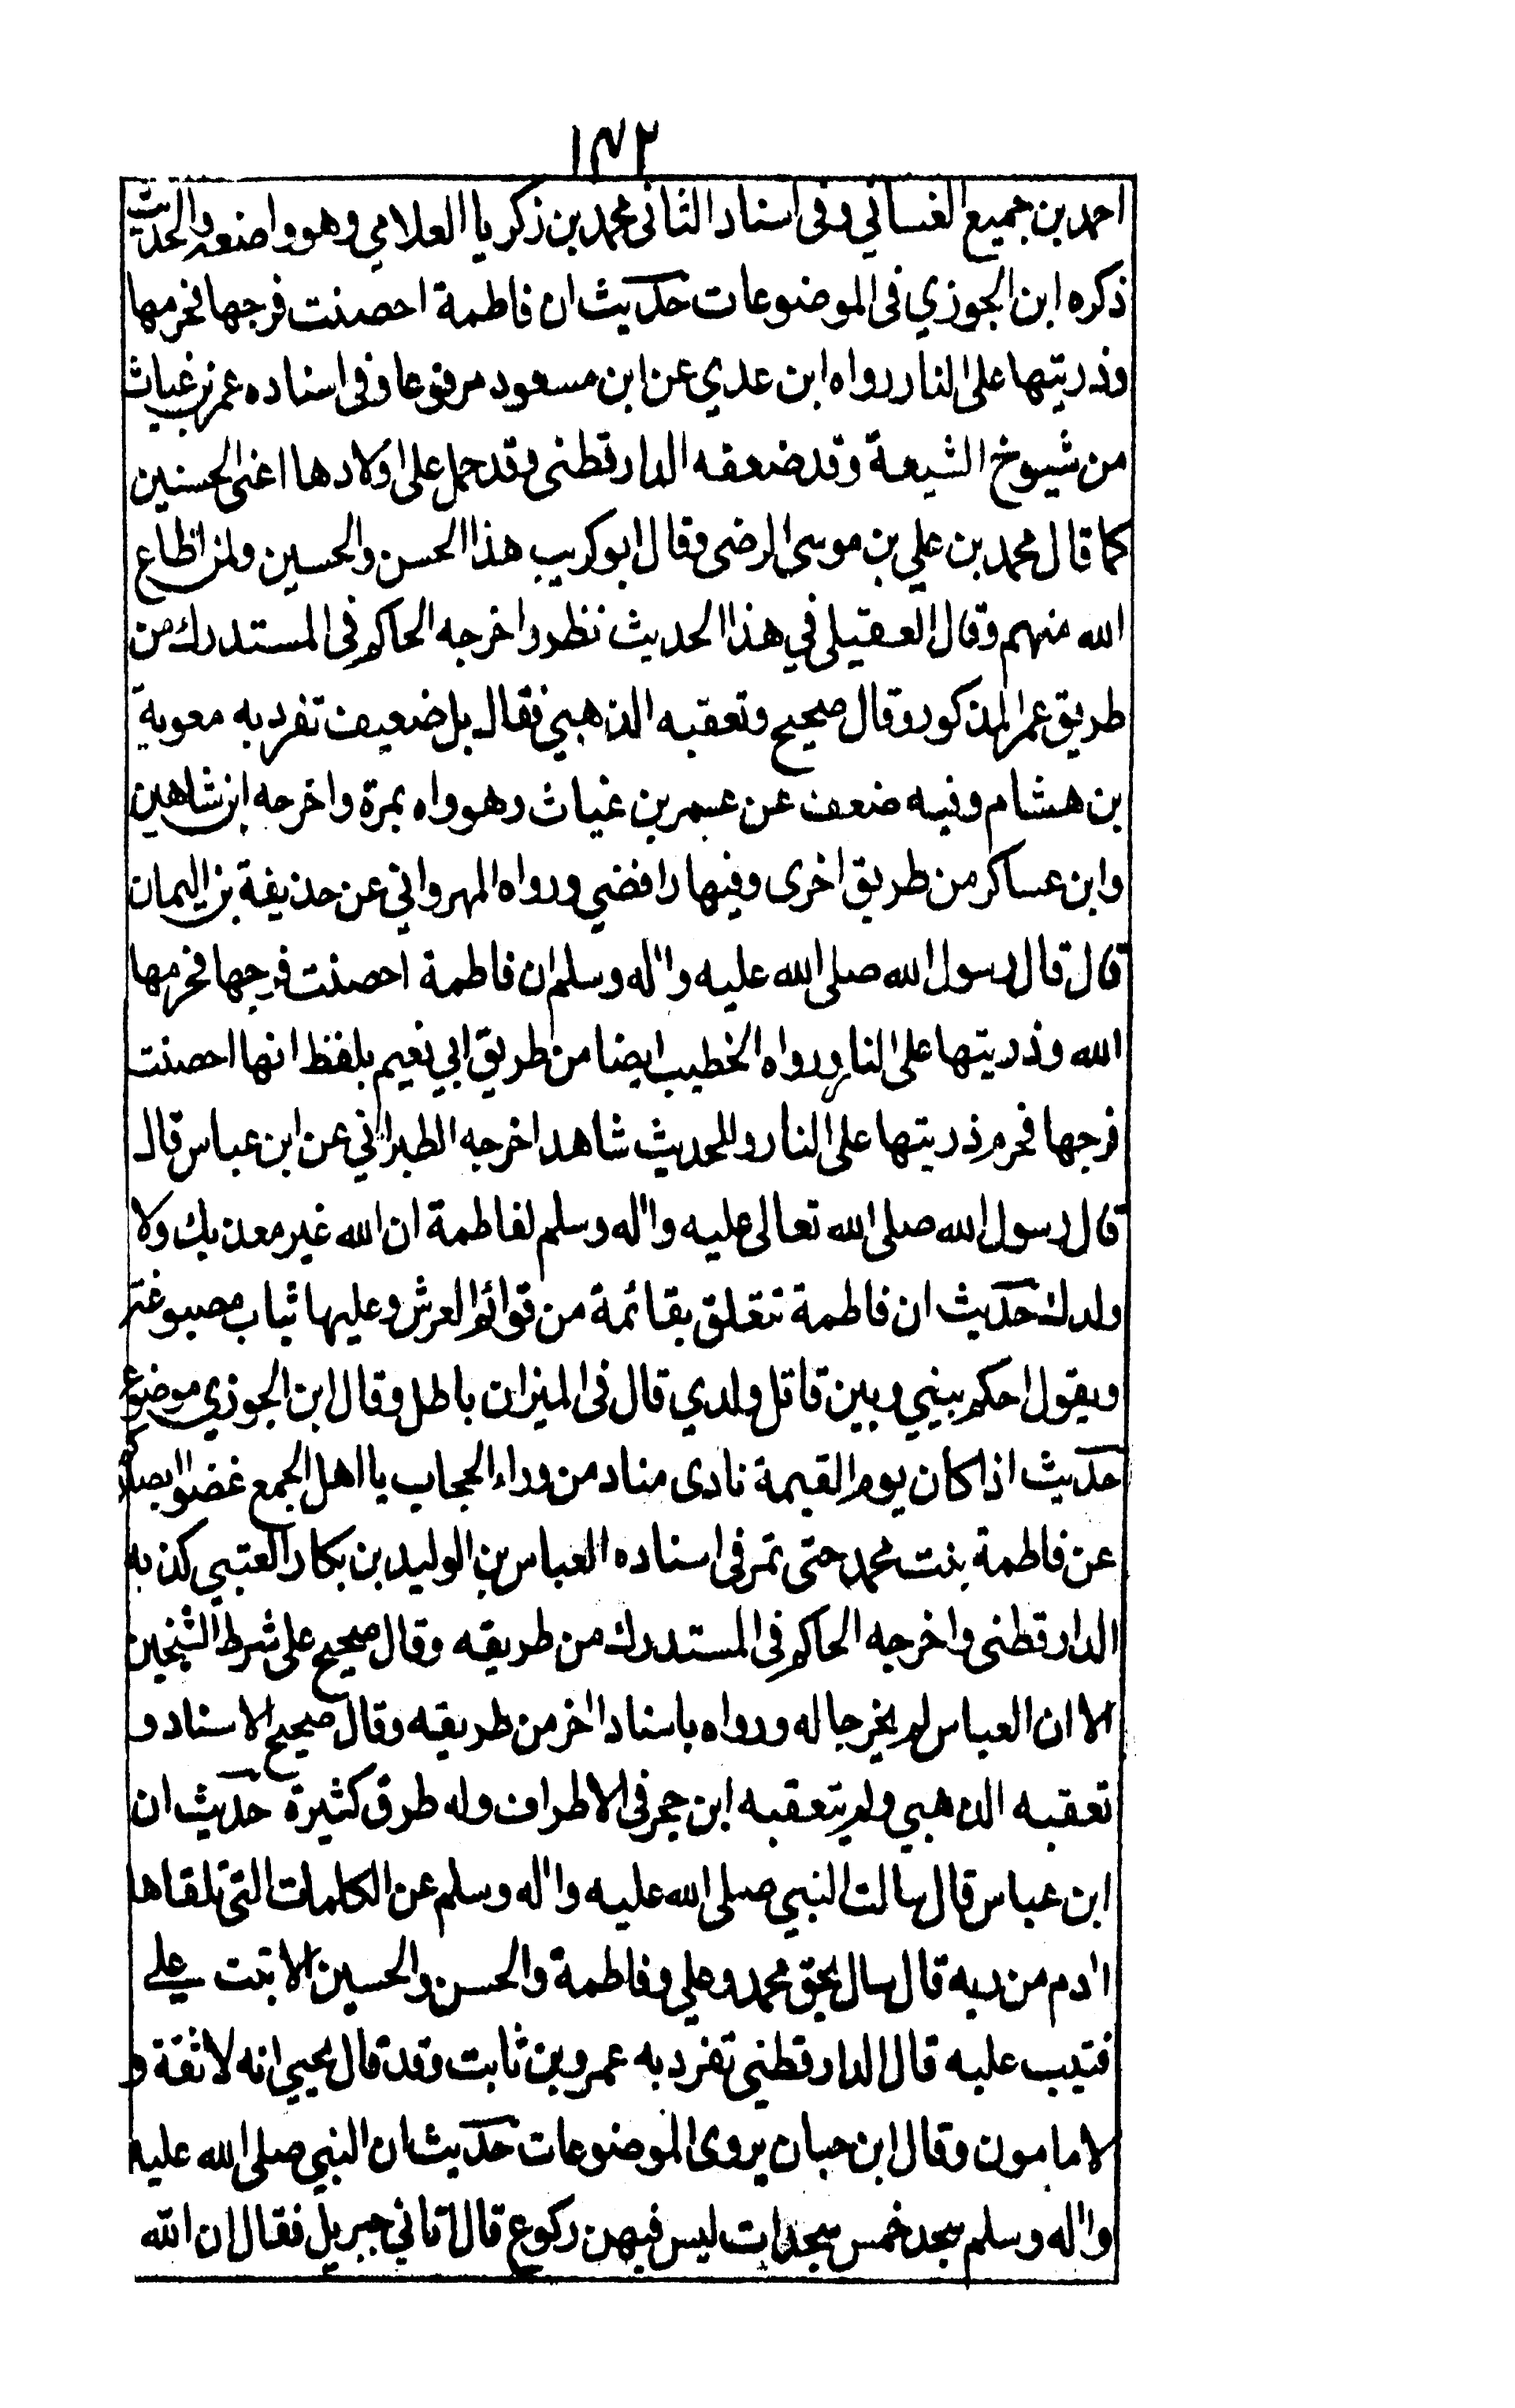 ١٤٢
احمد بن جميع الغساني وفى اسناد الثانى محمد بن زكريا العلامي وهو واضعه والحديث
ذكره ابن الجوزي فى الموضوعات حديث ان فاطمة احصنت فرجها فحرمها
وذريتها على النار رواه ابن عدي عن ابن مسعود مرفوعا وفى اسناده عمر بن غياث
من شيوخ الشيعة وقد ضعفه الدارقطنى وقد حمل على اولادها اعنى الحسنين
كما قال محمد بن علي بن موسى الرضى وقال ابو كريب هذا الحسن والحسين ولمن اطاع
الله منهم وقال العقيلى في هذا الحديث نظر واخرجه الحاكم فى المستدرك من
طريق عمر المذكور وقال صحيح وتعقبه الذهبي فقال بل ضعيف تفرد به معوية
بن هشام وفيه ضعف عن عمر بن غياث وهو واه بمرة واخرجه ابن شاهين
وابن عساكر من طريق اخرى وفيها رافضي ورواه المهرواني عن حذيفة بن اليمان
قال قال رسول الله صلى الله عليه واٰله وسلم ان فاطمة احصنت فرجها فحرمها
الله وذريتها على النار ورواه الخطيب ايضا من طريق ابي نعيم بلفظ انها احصنت
فرجها فحرم ذريتها على النار وللحديث شاهد اخرجه الطبراني عن ابن عباس قال
قال رسول الله صلى الله تعالى عليه واٰله وسلم لفاطمة ان الله غير معذبك ولا
ولدك حديث ان فاطمة تتعلق بقائمة من قوائم العرش وعليها ثياب مصبوغة
ويقول احكم بيني وبين قاتل ولدي قال فى الميزان باطل وقال ابن الجوزي موضوع
حديث اذا كان يوم القيمة نادى مناد من وراء الحجاب يا اهل الجمع غضوا ابصاركم
عن فاطمة بنت محمد حتى تمر فى اسناده العباس بن الوليد بن بكار العتبي كذبه
الدارقطنى واخرجه الحاكم فى المستدرك من طريقه وقال صحيح على شرط الشيخين
الا ان العباس لم يخرجا له ورواه باسناد اٰخر من طريقه وقال صحيح الاسناد و
تعقبه الذهبي ولم يتعقبه ابن حجر فى الاطراف وله طرق كثيرة حديث ان
ابن عباس قال سالت النبي صلى الله عليه واٰله وسلم عن الكلمات التى تلقاها
اٰدم من ربه قال سال بحق محمد وعلي وفاطمة والحسن والحسين الا تبت علي
فتيب عليه قال الدارقطني تفرد به عمرو بن ثابت وقد قال يحيي انه لا ثقة و
لا مامون وقال ابن حبان يروى الموضوعات حديث ان النبي صلى الله عليه
واٰله وسلم سجد خمس سجدات ليس فيهن ركوع قال اتاني جبريل فقال ان الله